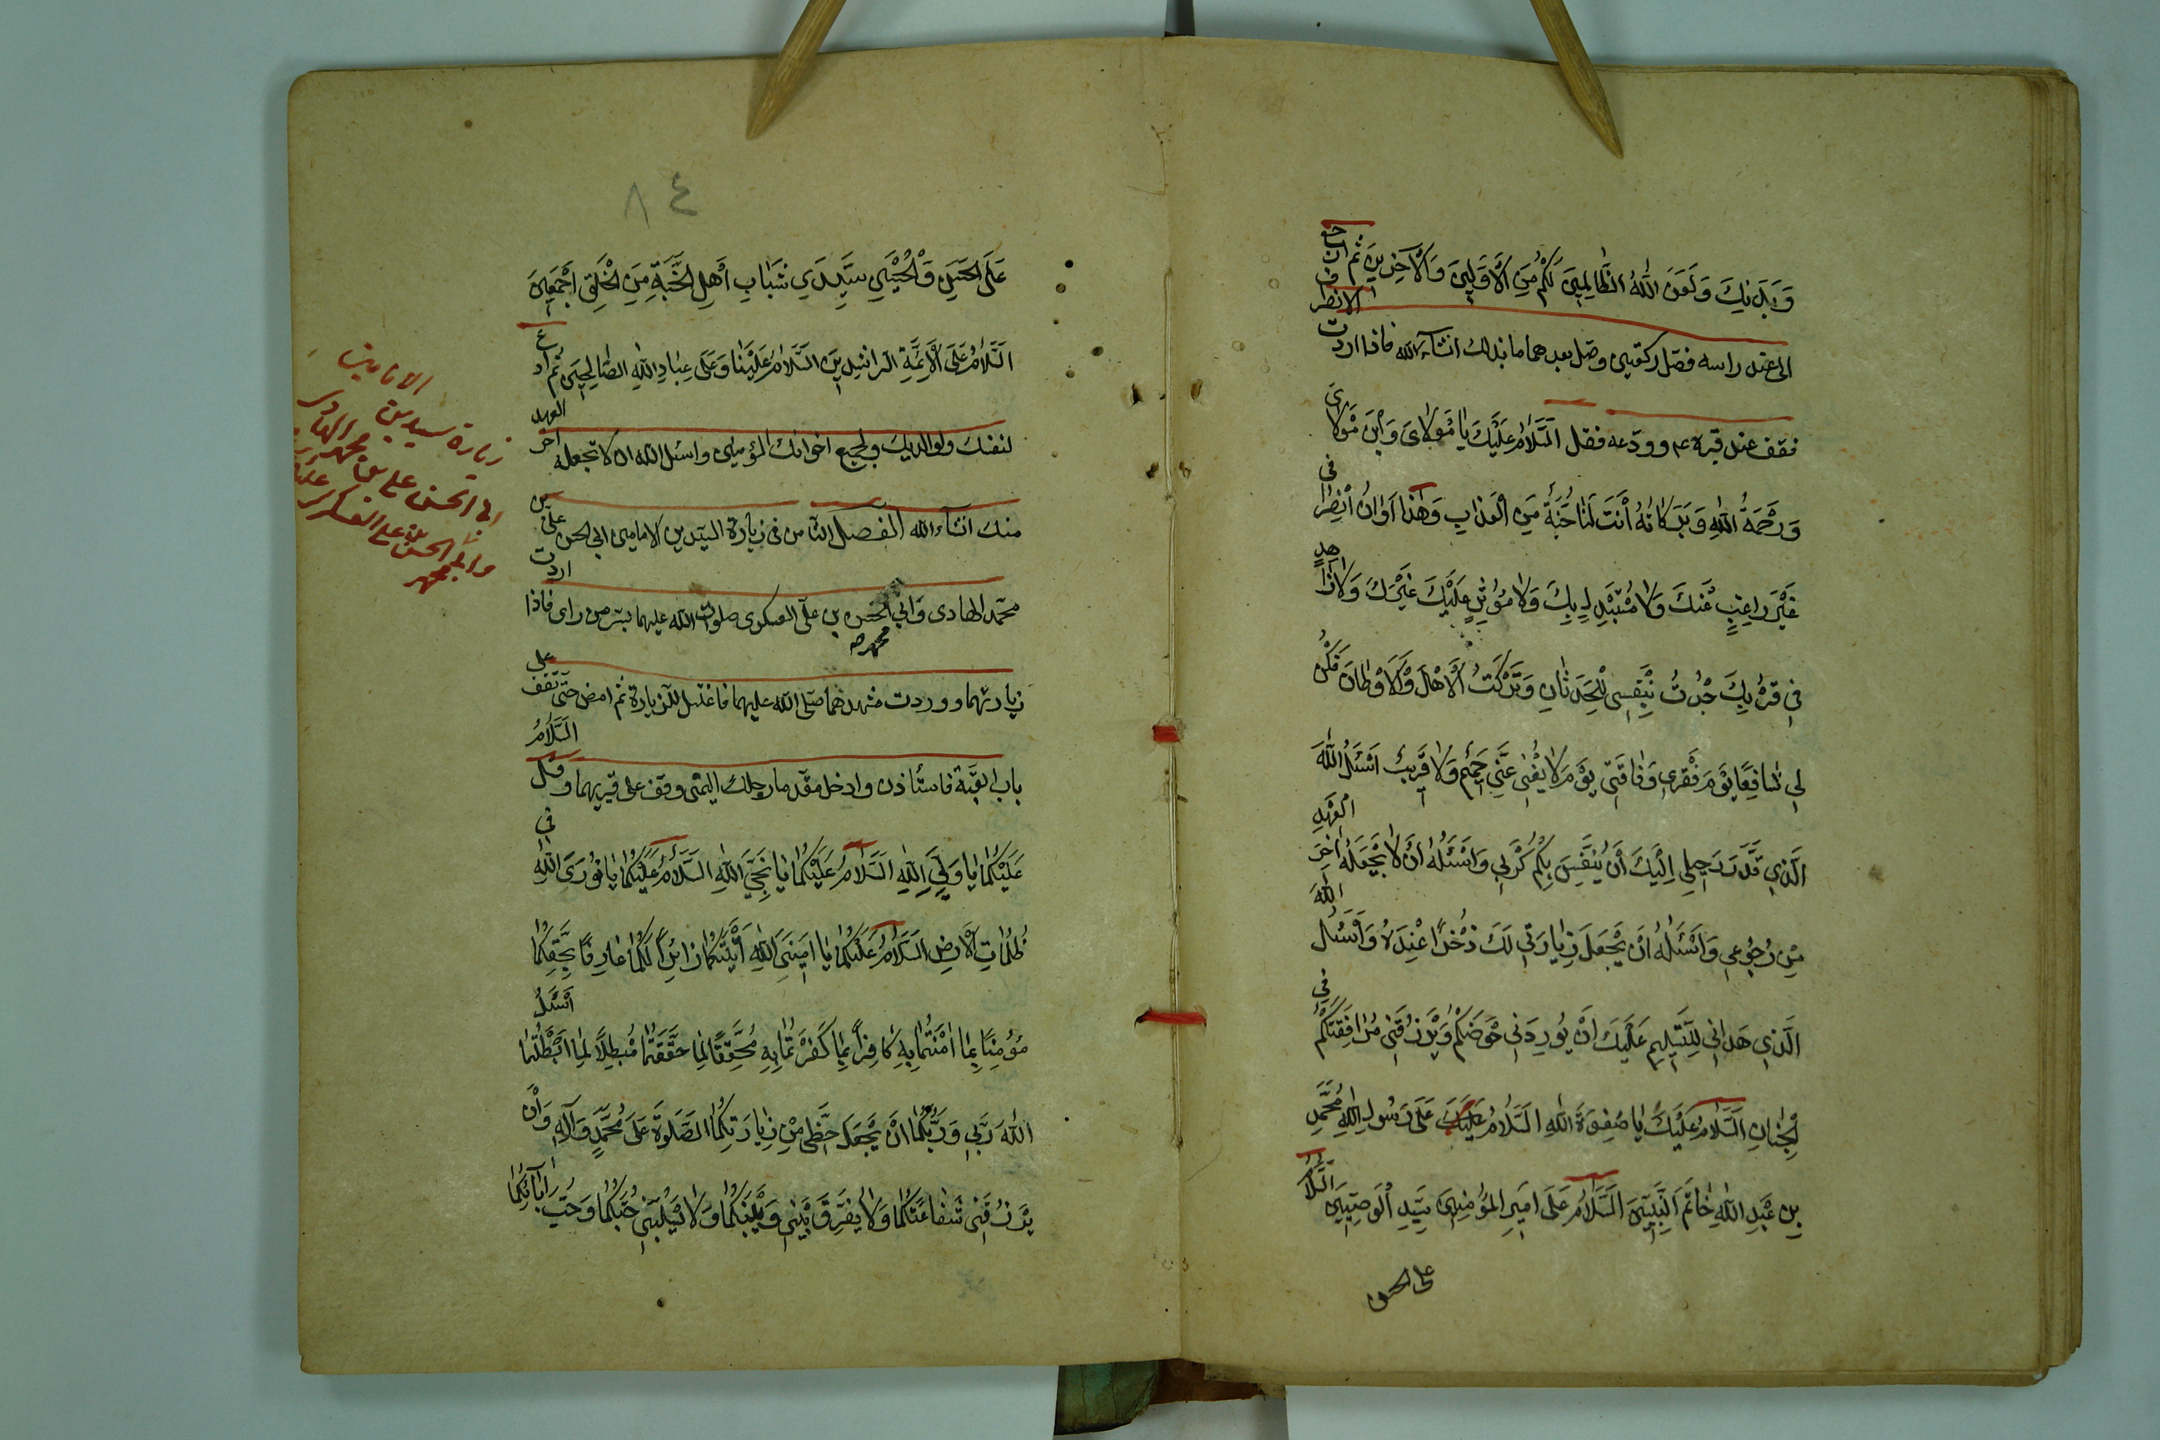 وَبَدَنِكَ وَلَعَنَ اللهُ الظَّالِمِينَ لَكُمْ مِنَ الْأَوَّلِينَ وَالْآخِرِينَ ثم
الى عند راسه فصّل ركعتين وصل بعدهما ما بدا لك انشاء الله فاذا اردت الانصراف
فقف عند قبره ع وودّعه فقل السَّلَامُ عَلَيْكَ يَا مَوْلَايَ وَابْنَ مَوْلَايَ
وَرَحْمَةُ اللهِ وَبَرَكَاتُهُ أَنْتَ لَنَا جُنَّةٌ مِنَ الْعَذَابِ وَهَذَا أَوَانُ انْصِرَافِي
غَيْرَ رَاغِبٍ عَنْكَ وَلَا مُسْتَبْدِلٍ بِكَ وَلَا مُؤْثِرٍ عَلَيْكَ غَيْرَكَ وَلَا زَاهِدٍ
فِي قُرْبِكَ جُدْتُ بِنَفْسِي لِلْحَدَثَانِ وَتَرَكْتُ الْأَهْلَ وَالْأَوْطَانَ فَكُنْ
لِي شَافِعًا يَوْمَ فَقْرِي وَفَاقَتِي يَوْمَ لَا يُغْنِي عَنِّي حَمِيمٌ وَلَا قَرِيبٌ اَسْئَلُ اللهَ
الَّذِي قَدَّرَ رَحِيلِي اِلَيْكَ أَنْ يُنَفِّسَ بِكُمْ كَرْبِي وَاَسْئَلُهُ أَنْ لَا يَجْعَلَهُ آخِرَ الْعَهْدِ
مِنْ رُجُوعِي وَاَسْئَلُهُ اَنْ يَجْعَلَ زِيَارَتِي لَكَ ذُخْرًا عِنْدَهُ وَاَسْئَلُ اللهَ
الَّذِي هَدَانِي لِلتَّسْلِيمِ عَلَيْكَ اَنْ يُورِدَنِي حَوْضَكُمْ وَيَرْزُقَنِي مُرَافَقَتَكُمْ فِي
الْجِنَانِ اَلسَّلَامُ عَلَيْكَ يَا صَفْوَةَ اللهِ اَلسَّلَامُ عَلَى رَسُولِ اللهِ مُحَمَّدِ
بْنِ عَبْدِ اللهِ خَاتَمِ النَّبِيِّينَ اَلسَّلَامُ عَلَى اَمِيرِ الْمُؤْمِنِينَ سَيِّدِ الْوَصِيِّينَ اَلسَّلَامُ
على الحسن
٨٤
عَلَى الْحَسَنِ وَالْحُسَيْنِ سَيِّدَيْ شَبَابِ أَهْلِ الْجَنَّةِ مِنَ الْخَلْقِ اَجْمَعِينَ
اَلسَّلَامُ عَلَى الْاَئِمَّةِ الرَّاشِدِينَ اَلسَّلَامُ عَلَيْنَا وَعَلَى عِبَادِ اللهِ الصَّالِحِينَ ثُمَّ ادع
لنفسك ولوالديك ولجميع اخوانك المؤمنين واسئل الله ان لا تجعله آخر العهد
منك انشاء الله الفصل الثامن في زيارة السيّدين الامامين ابي الحسن علي بن
محمّد الهادي وابي محمد الحسن بن علي العسكري صلوات الله عليهما بسرّ من راى فاذا اردت
زيارتهما ووردت مشهدهما صلّى الله عليهما فاغتسل للزيارة ثم امض حتّى تقف على
باب القبّة فاستأذن وادخل مقدّما رجلك اليمنى وقف على قبريهما وقل السَّلَامُ
عَلَيْكُمَا يَا وَلِيَّيِ اللهِ اَلسَّلَامُ عَلَيْكُمَا يَا نَجِيَّيِ اللهِ اَلسَّلَامُ عَلَيْكُمَا يَا نُورَيِ اللهِ فِي
ظُلُمَاتِ الْاَرْضِ اَلسَّلَامُ عَلَيْكُمَا يَا اَمِينَيِ اللهِ اَتَيْتُكُمَا زَائِرًا لَكُمَا عَارِفًا بِحَقِّكُمَا
مُؤْمِنًا بِمَا اٰمَنْتُمَا بِهِ كَافِرًا بِمَا كَفَرْتُمَا بِهِ مُحَقِّقًا لِمَا حَقَّقْتُمَا مُبْطِلًا لِمَا اَبْطَلْتُمَا اَسْئَلُ
اللهَ رَبِّي وَرَبَّكُمَا اَنْ يَجْعَلَ حَظِّي مِنْ زِيَارَتِكُمَا الصَّلٰوةَ عَلَى مُحَمَّدٍ وَآلِهِ وَاَنْ
يَرْزُقَنِي شَفَاعَتَكُمَا وَلَا يُفَرِّقَ بَيْنِي وَبَيْنَكُمَا وَلَا يَسْلُبَنِي حُبَّكُمَا وَحُبَّ اٰبَائِكُمَا
الامامين
زيارة سيدين
ابي الحسن علي بن محمد الهادي
الحسن بن علي العسكري